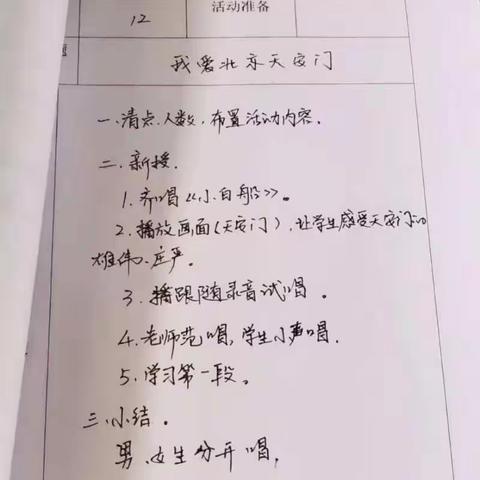 活动准备
12
题
我爱北京天安门
一、清点人数，布置活动内容。
二、新授。
1. 齐唱《小白船》。
2. 播放画面（天安门），让学生感受天安门的
雄伟、庄严。
3. 播跟随录音试唱。
4. 老师范唱，学生小声唱。
5. 学习第一段。
三、小结。
男、女生分开唱，